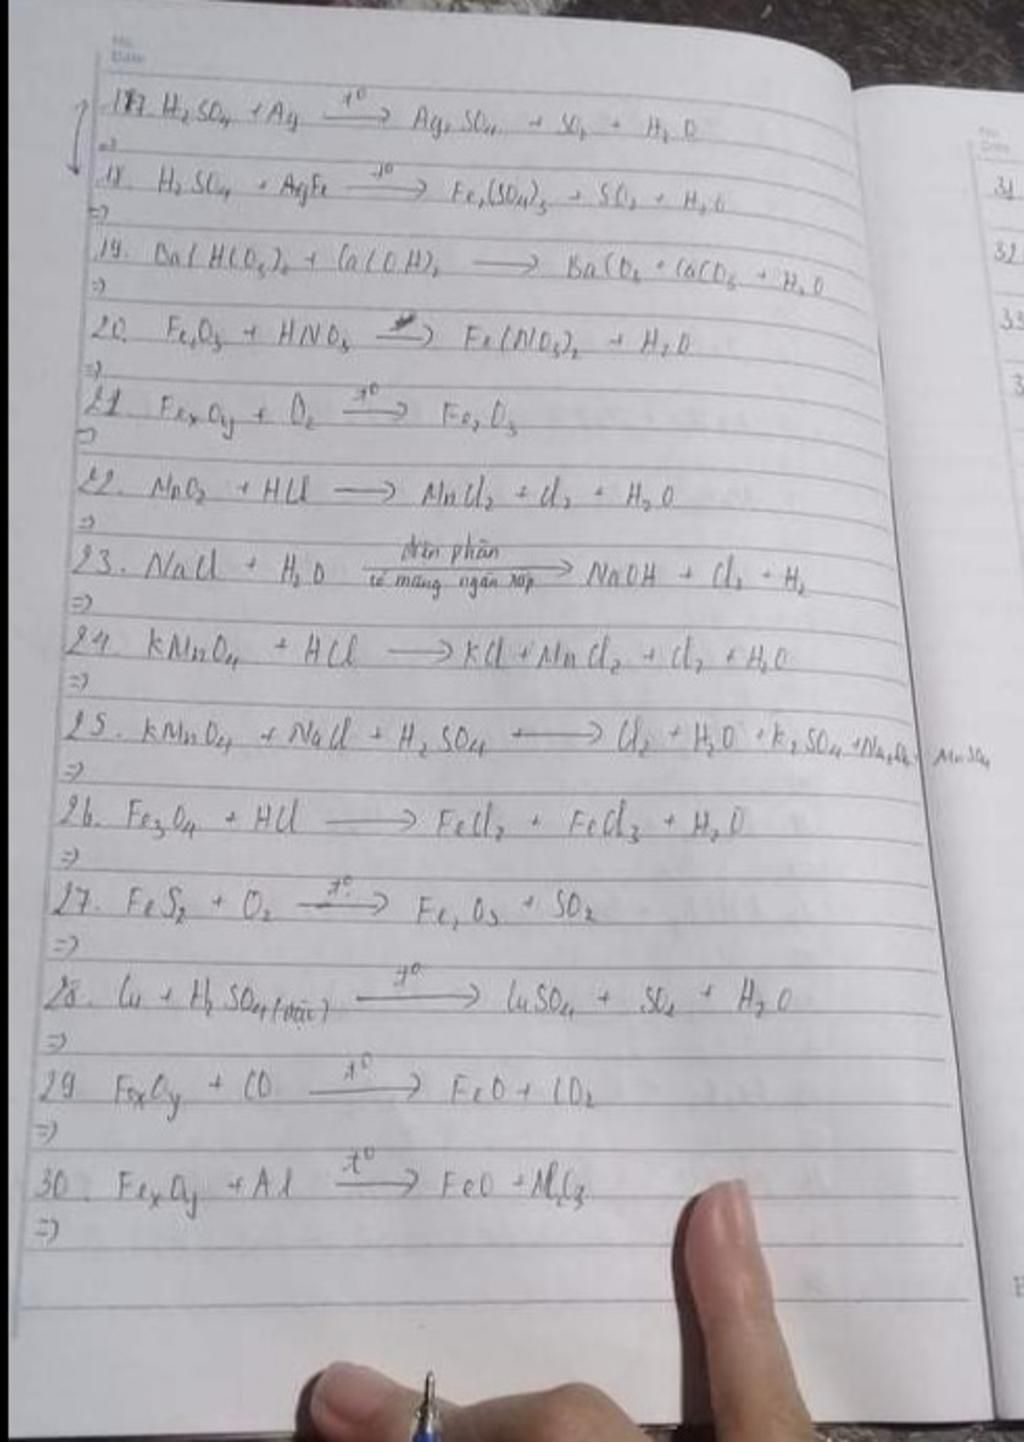 No.
Date
17. H₂SO₄ + Ag —t⁰→ Ag₂SO₄ + SO₂ + H₂O
=>
18. H₂SO₄ + Fe —t⁰→ Fe₂(SO₄)₃ + SO₂ + H₂O
=>
19. Ba(HCO₃)₂ + Ca(OH)₂ → BaCO₃ + CaCO₃ + H₂O
=>
20. Fe₂O₃ + HNO₃ → Fe(NO₃)₂ + H₂O
=>
21. FexOy + O₂ —t⁰→ Fe₂O₃
=>
22. MnO₂ + HCl → MnCl₂ + Cl₂ + H₂O
=>
điện phân
23. NaCl + H₂O → NaOH + Cl₂ + H₂
có màng ngăn xốp
=>
24. KMnO₄ + HCl → KCl + MnCl₂ + Cl₂ + H₂O
=>
25. KMnO₄ + NaCl + H₂SO₄ → Cl₂ + H₂O + K₂SO₄ + MnSO₄
=>
26. Fe₃O₄ + HCl → FeCl₂ + FeCl₃ + H₂O
=>
27. FeS₂ + O₂ —t⁰→ Fe₂O₃ + SO₂
=>
28. Cu + H₂SO₄ (đặc) —t⁰→ CuSO₄ + SO₂ + H₂O
=>
29 FexOy + CO —t⁰→ FeO + CO₂
=>
30. FexOy + Al —t⁰→ FeO + Al₂O₃
=>
No.
Date
31
32
33